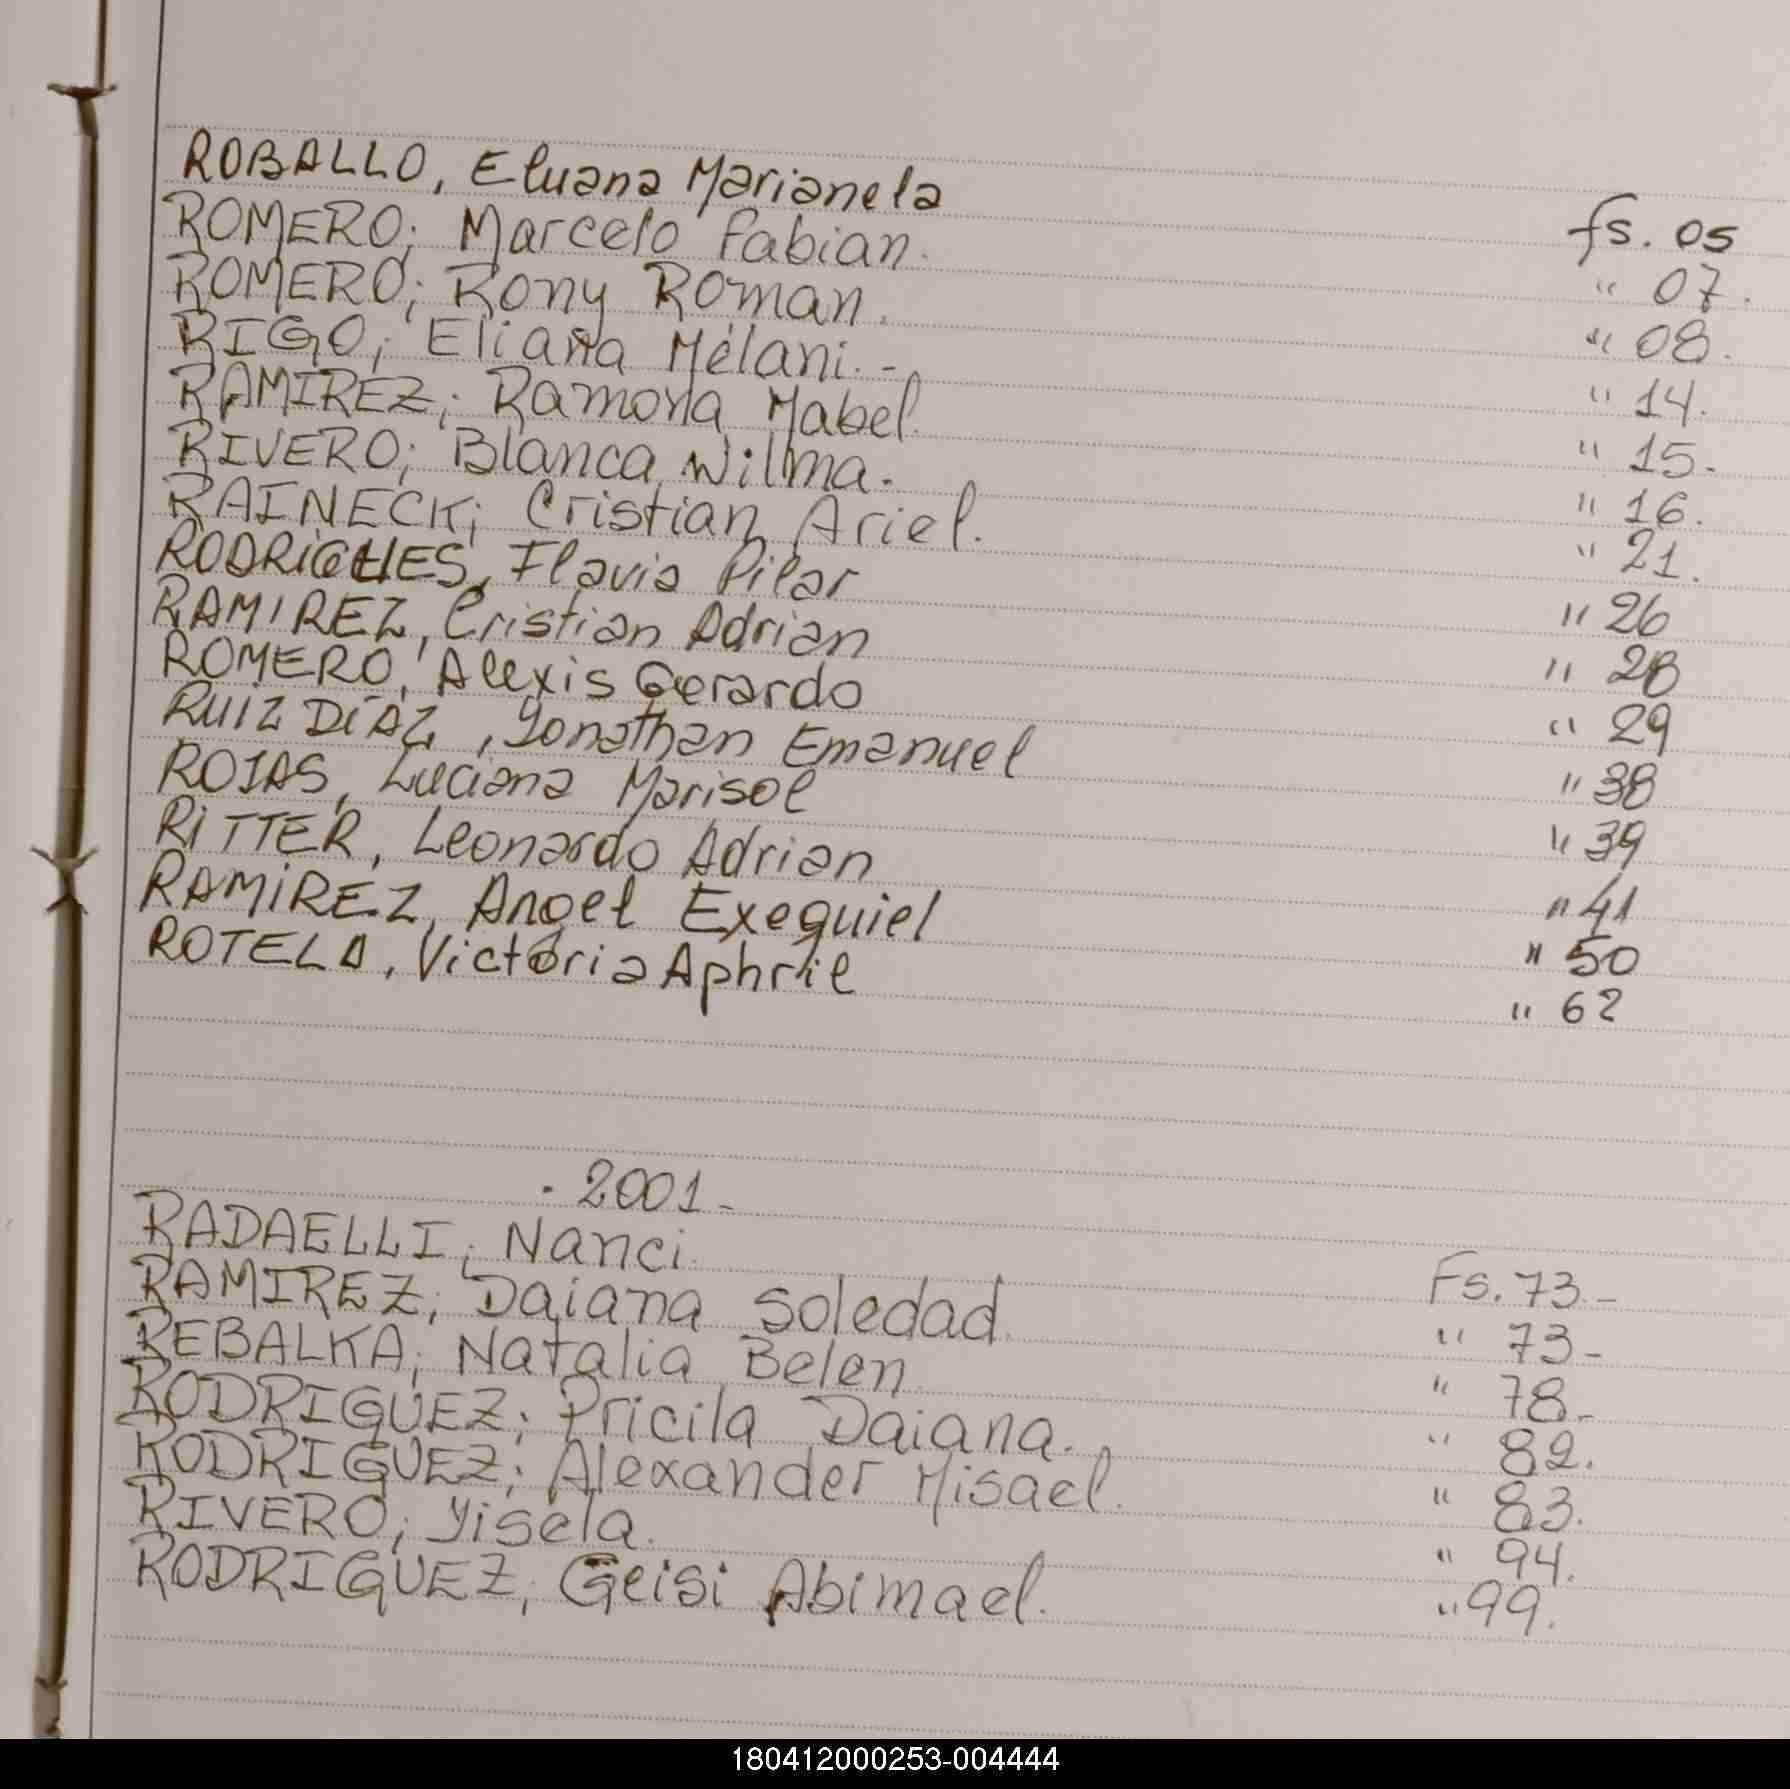 ROBALLO, Eluana Marianela fs. 05
ROMERO; Marcelo Fabian. " 07.
ROMERO; Rony Roman. " 08.
RIGO; Eliana Melani.- " 14.
RAMIREZ; Ramona Mabel. " 15.-
RIVERO; Blanca Wilma. " 16.
RAINECK; Cristian Ariel. " 21.
RODRIGUES, Flavia Pilar " 26
RAMIREZ, Cristian Adrian " 28
ROMERO, Alexis Gerardo " 29
RUIZ DÍAZ, Yonathan Emanuel " 38
ROJAS, Luciana Marisol " 39
RITTER, Leonardo Adrian " 41
RAMIREZ, Angel Exequiel " 50
ROTELA, Victoria Aphril " 62
. 2001-
RADAELLI; Nanci. Fs. 73.-
RAMIREZ; Daiana Soledad. " 73-
REBALKA; Natalia Belen. " 78-
RODRIGUEZ; Pricila Daiana. " 82.
RODRIGUEZ; Alexander Misael. " 83.
RIVERO; Yisela. " 94.
RODRIGUEZ; Geisi Abimael. " 99.
180412000253-004444